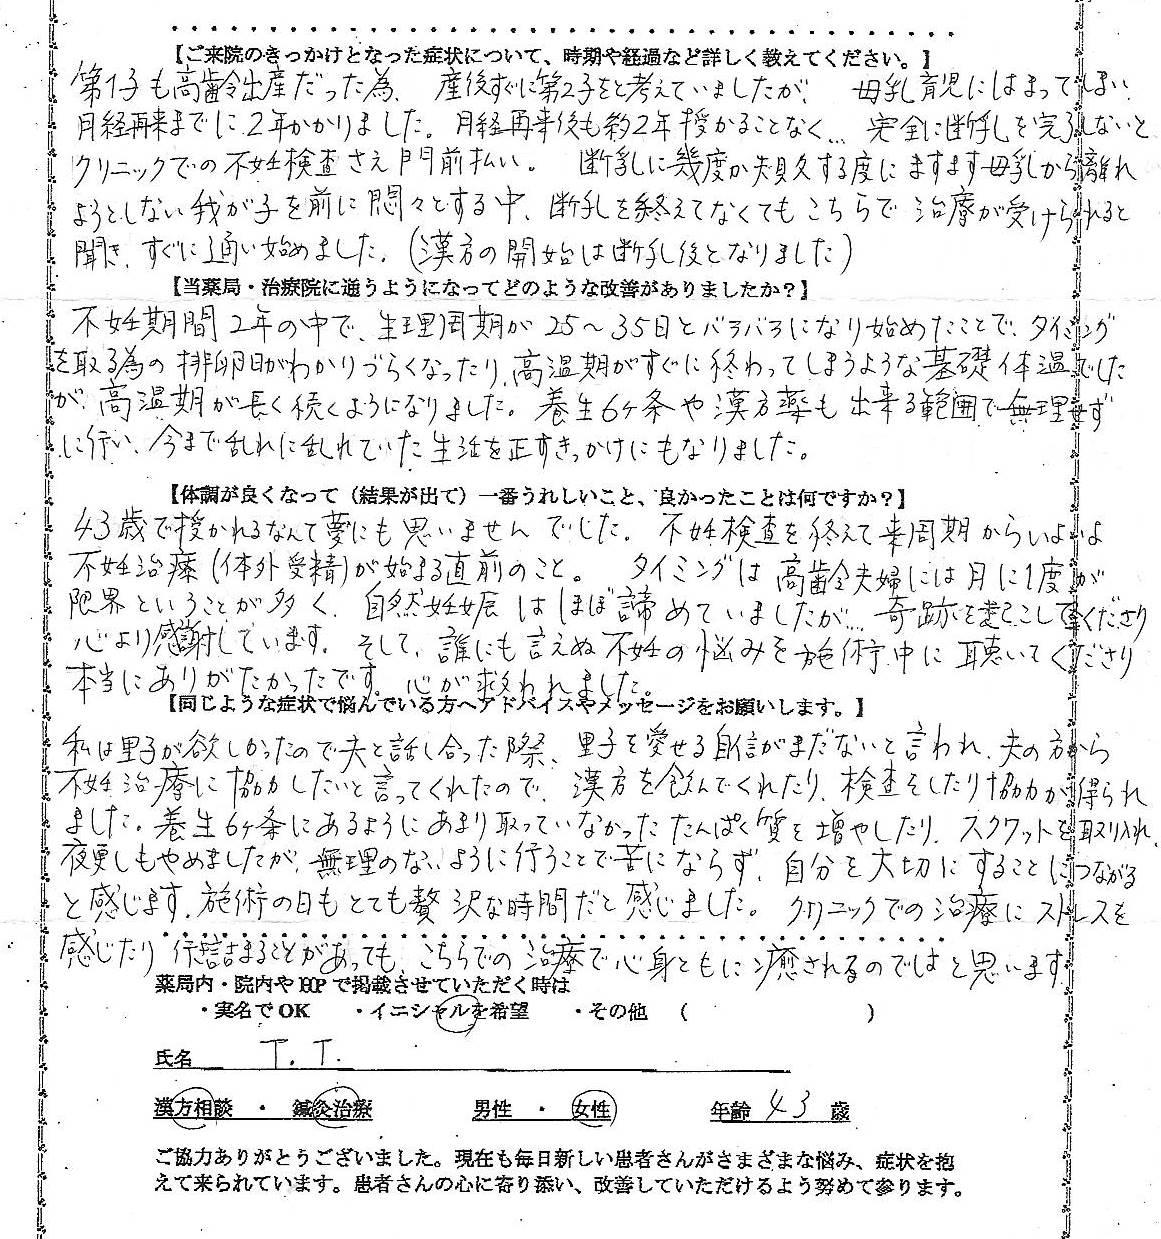 【ご来院のきっかけとなった症状について、時期や経過など詳しく教えてください。】
第1子も高齢出産だった為、産後すぐに第2子をと考えていましたが、母乳育児にはまってしまい、
月経再来までに2年かかりました。月経再来後も約2年授かることなく… 完全に断乳を完了しないと
クリニックでの不妊検査さえ門前払い。 断乳に幾度か失敗する度にますます母乳から離れ
ようとしない我が子を前に悶々とする中、断乳を終えてなくてもこちらで治療が受けられると
聞き、すぐに通い始めました。(漢方の開始は断乳後となりました)
【当薬局・治療院に通うようになってどのような改善がありましたか？】
不妊期間2年の中で、生理周期が25～35日とバラバラになり始めたことで、タイミング
を取る為の排卵日がわかりづらくなったり、高温期がすぐに終わってしまうような基礎体温でした
が、高温期が長く続くようになりました。養生6ヶ条や漢方薬も出来る範囲で無理せず
に行い、今まで乱れに乱れていた生活を正すきっかけにもなりました。
【体調が良くなって（結果が出て）一番うれしいこと、良かったことは何ですか？】
43歳で授かれるなんて夢にも思いませんでした。不妊検査を終えて来周期からいよいよ
不妊治療(体外受精)が始まる直前のこと。 タイミングは高齢夫婦には月に1度が
限界ということが多く、自然妊娠はほぼ諦めていましたが… 奇跡を起こして下さり
心より感謝しています。そして、誰にも言えぬ不妊の悩みを施術中に聴いてくださり
本当にありがたかったです。心が救われました。
【同じような症状で悩んでいる方へアドバイスやメッセージをお願いします。】
私は里子が欲しかったので夫と話し合った際、里子を愛せる自信がまだないと言われ、夫の方から
不妊治療に協力したいと言ってくれたので、漢方を飲んでくれたり、検査をしたり協力が得られ
ました。養生6ヶ条にあるようにあまり取っていなかったたんぱく質を増やしたり、スクワットを取り入れ、
夜更しもやめましたが、無理のないように行うことで苦にならず、自分を大切にすることにつながる
と感じます。施術の日もとても贅沢な時間だと感じました。クリニックでの治療にストレスを
感じたり行き詰まることがあっても、こちらでの治療で心身ともに癒されるのではと思います。
薬局内・院内やHPで掲載させていただく時は
・実名でOK ・イニシャルを希望 ・その他 （ ）
氏名 T.T.
漢方相談 ・ 鍼灸治療 男性 ・ 女性 年齢 43 歳
ご協力ありがとうございました。現在も毎日新しい患者さんがさまざまな悩み、症状を抱
えて来られています。患者さんの心に寄り添い、改善していただけるよう努めて参ります。